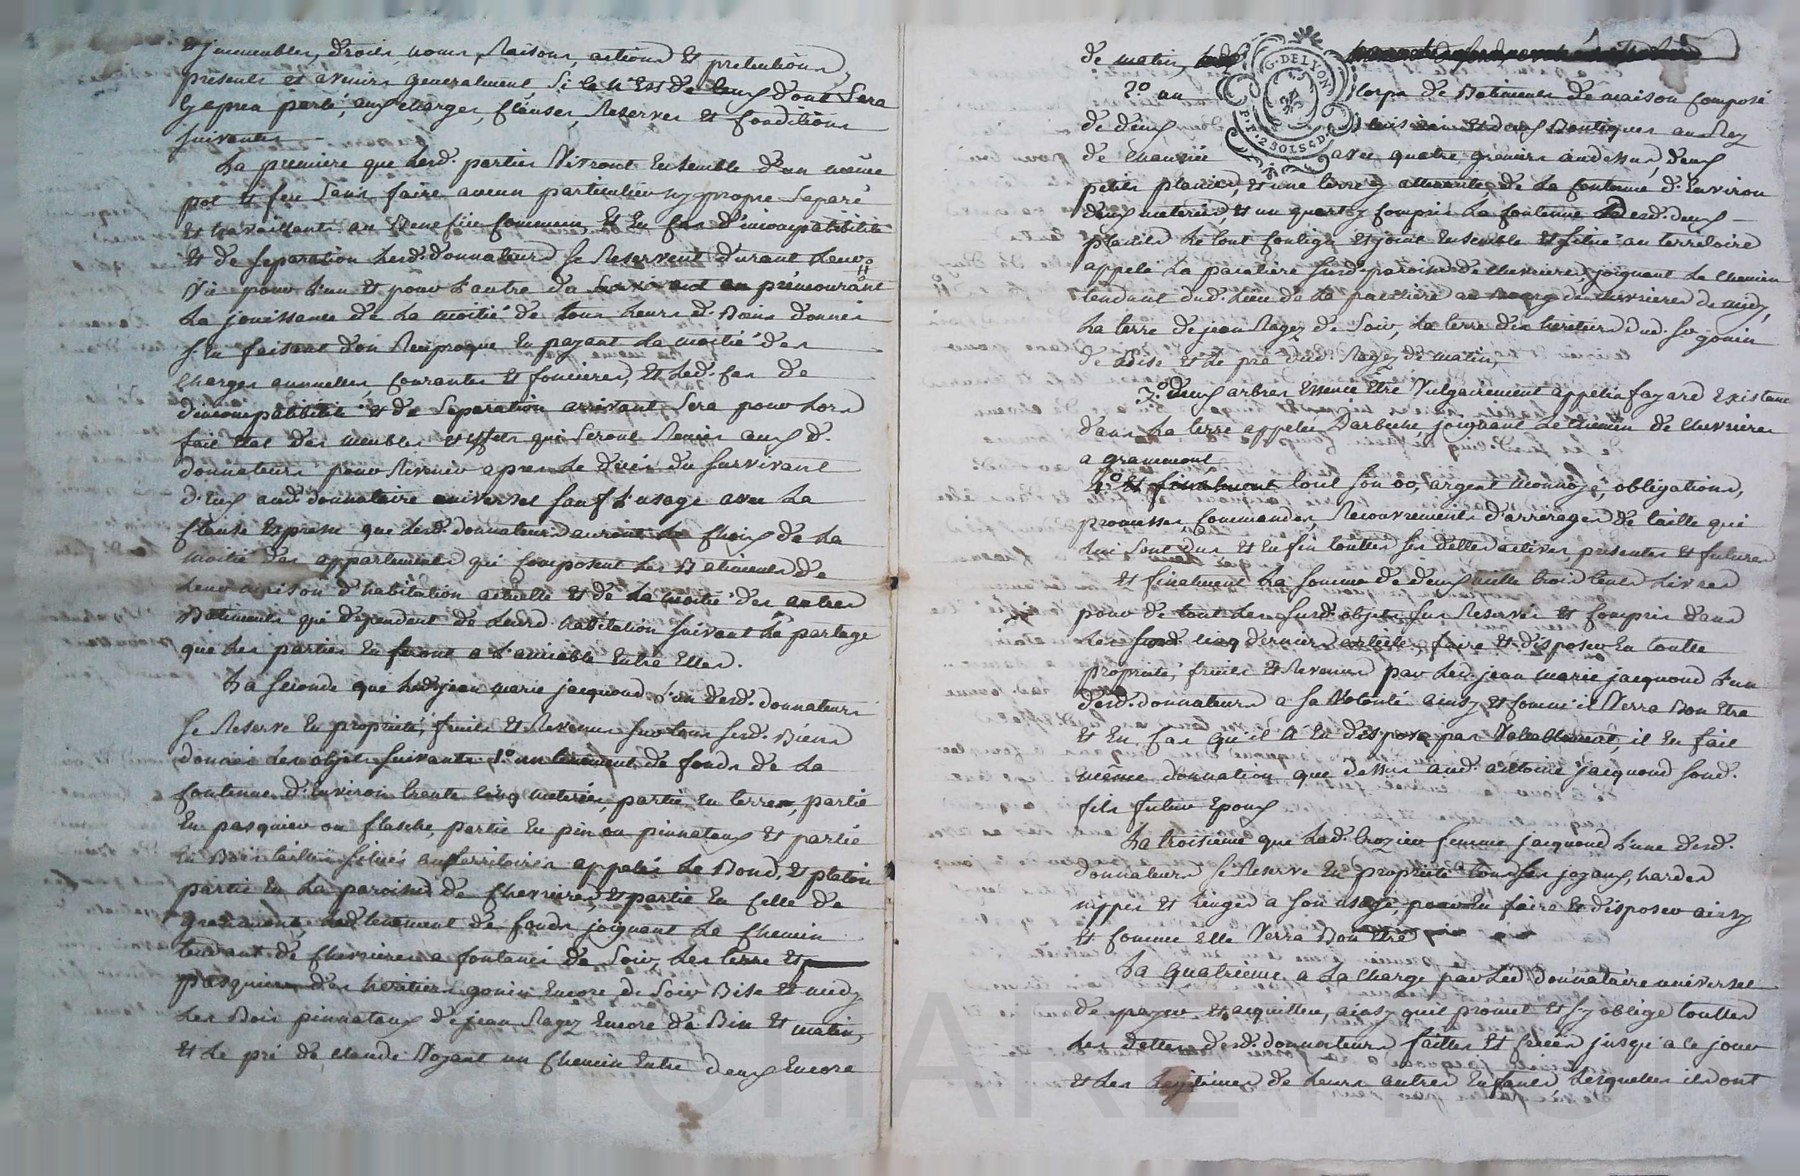 et immeubles, droits, noms, Raisons, actions et pretentions,
presents et avenirs generalement, si ce n'est de ceux dont sera
cy apres parlé, aux charges, clauses Reserves et conditions
suivantes
La premiere que lesd. parties Vivront Ensemble d'un même
pot et feu sans faire aucun particulier ny propre separé
et travaillants au Benefice commun, et En cas d'incompatibilité
et de separation lesd. donnateurs se Reservent durant Leurs
Vie pour l'un et pour l'autre du survivant au premourant
La jouissance de La moitié de tous leurs d. Biens donnés
En faisant don Reciproque En payant La moitié des
charges annuelles, courantes et foncieres, et led. cas de
dincompatibilité et de separation arrivant sera pour lors
fait etat des meubles et effets qui seront Remis aux d.
donnateurs pour Revenir apres Le deces du survivant
d'eux aud. donnataire universel sauf l'usage avec La
clause Expresse que lesd. donnateurs auront Le choix de La
moitié des appartements qui composent les Batiments de
Leur maison d'habitation actuelle et de La moitié des autres
Batiments qui dependent de leurd. habitation suivant Le partage
que Les parties En feront a L'amiable Entre Elles.
La seconde que led. jean marie jacquond l'un desd. donnateurs
se Reserve En proprieté, fruits et Revenus sur tous sesd. Biens
donnés Les objets suivants 1.º un tenement de fonds de La
contenue d'Environ trente cinq meterées, partie En terres, partie
En pasquier ou flache, partie En pin ou pinnateaux et partie
En Bois taillis situés aux territoires appelés Le Bond, et platon
partie En La paroisse de Chevrieres, et partie En Celle de
grammont, led. tenement de fonds joignant Le Chemin
tendant de Chevrieres a fontanès de Soir, Les terre et
pasquier des heritiers gonin Encore de Soir Bise et midy
Les Bois pinnateaux de jean Ragez Encore de Bise et matin,
et Le pré de claude Voyant un Chemin Entre deux Encore
de matin,
G. DE LYON
P. P. 2 SOLS 4 D.
2.º un corps de Batiments de maison composé
de deux cuisines et deux Boutiques au Rez
de chaussée avec quatre greniers audessus, deux
petits placiers, et une terre y attenante, de La contenue d'Environ
deux meterées, et un quarton compris La contenue desd. deux
placiers Le tout contigu et joint Ensemble et situé au territoire
appelé La paratiere susd. paroisse de chevrieres, joignant Le chemin
tendant dud. Lieu de La paratiere au Bourg de chevrieres de midy,
La terre de jean Ragez de Soir, La terre des heritiers dud. Sr. gonin
de Bise et Le pré dud. Ragez de matin,
3.º deux arbres essence Etre Vulgairement appelés fayard Existants
dans La terre appelée Darbeche joignant Le chemin de chevrieres
a grammont
4.º et finalement tout son or, argent Monnoyé, obligations,
promesses, Commandes, Recouvrements d'arrerages de taille qui
Lui sont dus et En fin touttes ses dettes actives, presentes et futures
et finalement La somme de deux mille trois cents Livres
pour de tout Les susd. objets sus Reservés et compris dans
Les susd. cinq derniers articles, faire et disposer En toutte
proprieté, fruits et Revenus par led. jean marie jacquond L'un
desd. donnateurs a sa Volonté ainsy et comme il Verra Bon Etre
et En Cas qu'il N'En dispose pas Valablement, il En fait
même donnation que dessus aud. antoine jacquond sond.
fils futur Epoux
La troisieme que Lad. Crozier femme jacquond L'une desd.
donnateurs se Reserve En proprieté tous ses joyaux, hardes
nippes et Linges a son usage, pour En faire et disposer ainsy
et comme Elle Verra Bon Etre
La Quatrieme a La Charge par Led. donnataire universel
de payer et acquitter, ainsy quil promet et s'y oblige touttes
Les dettes desd. donnateurs faittes et créées jusqu'a ce jour
et Les Legitimes de Leurs autres Enfants, Lesquelles ils ont